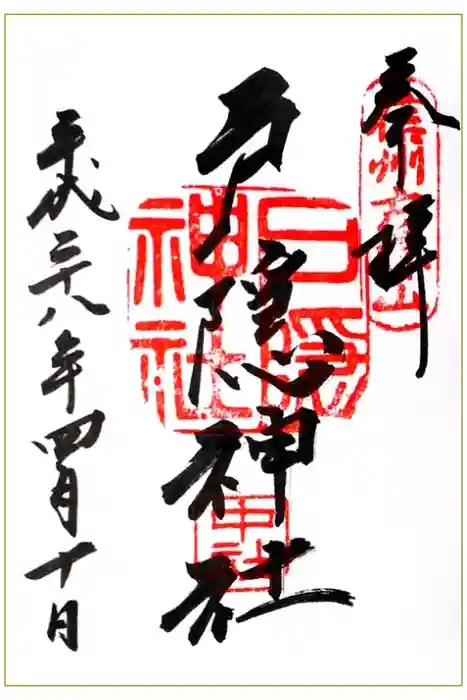 奉拝
信州戸隠山
戸隠神社
戸隠神社
中社
平成二十八年四月十日